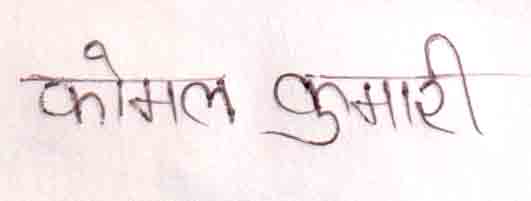 कोमल कुमारी